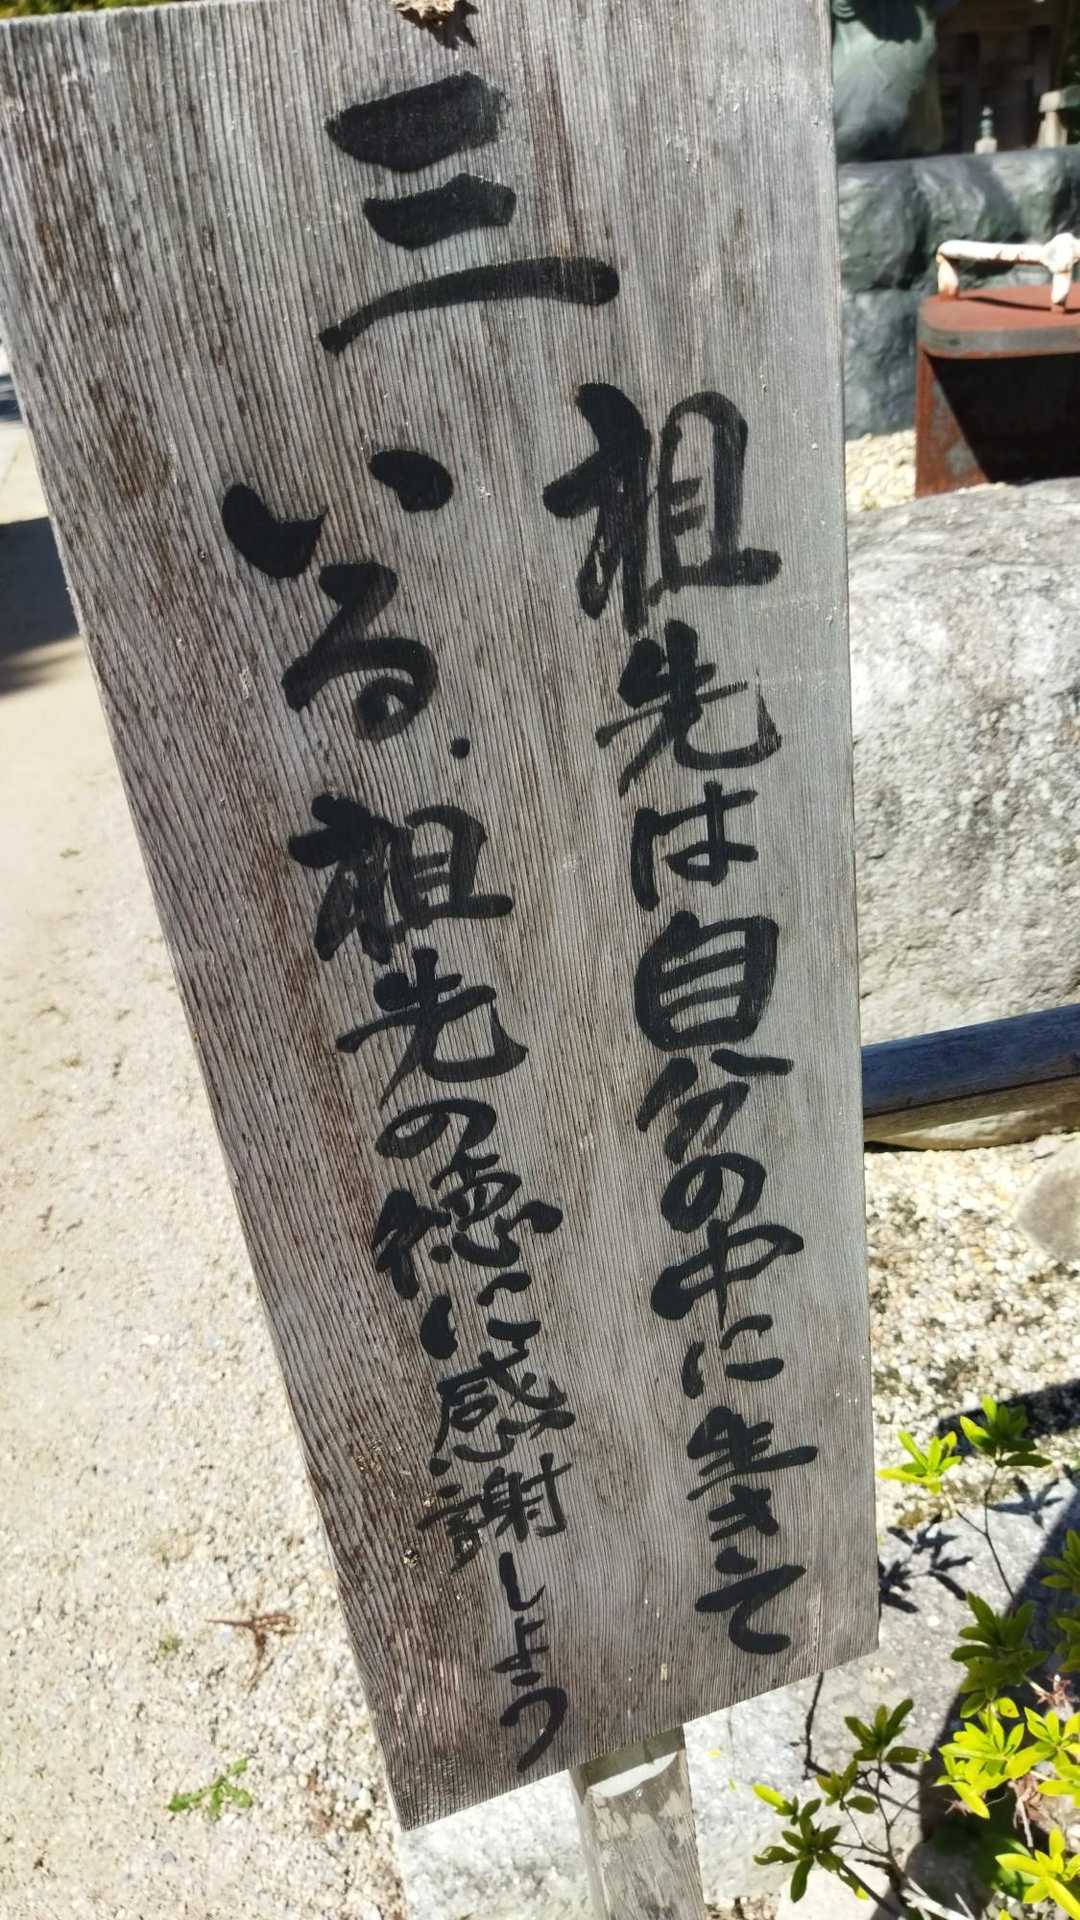 三、
祖先は自分の中に生きて
いる.祖先の徳に感謝しよう